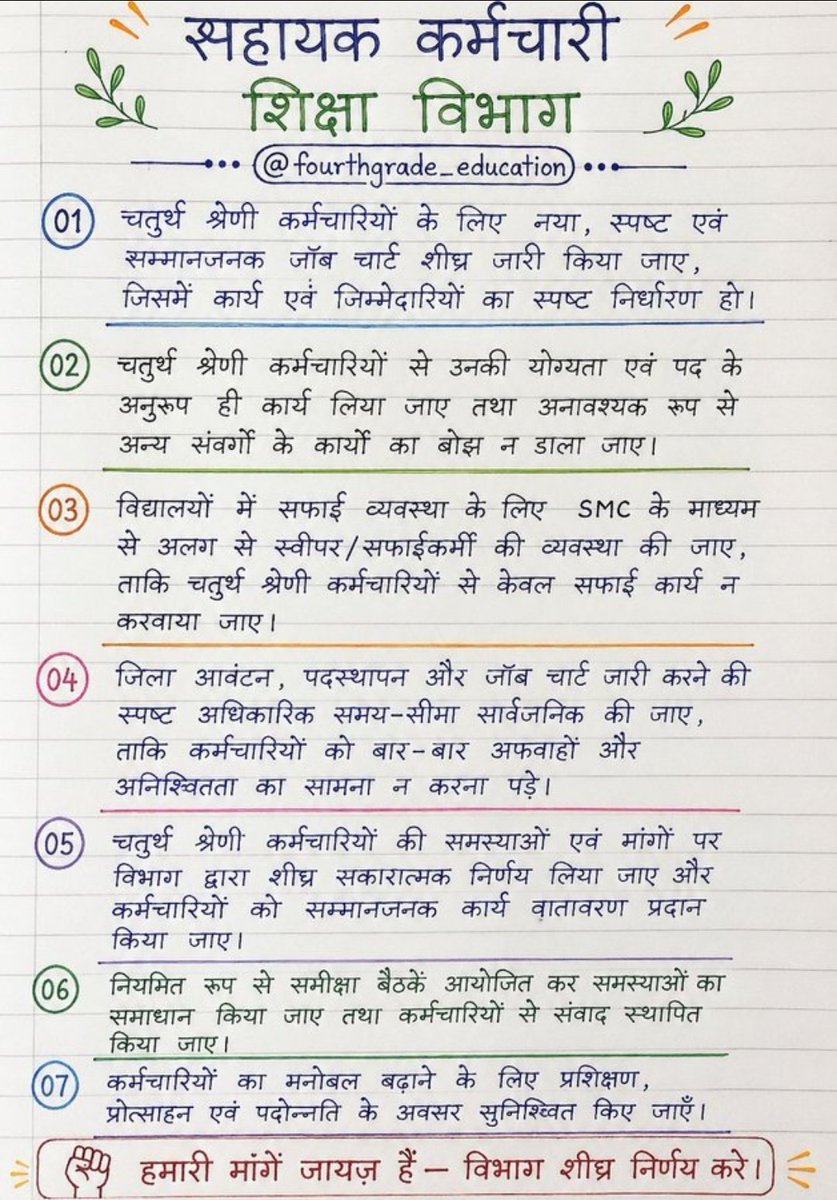 सहायक कर्मचारी
शिक्षा विभाग
@fourthgrade_education
01 चतुर्थ श्रेणी कर्मचारियों के लिए नया, स्पष्ट एवं
सम्मानजनक जॉब चार्ट शीघ्र जारी किया जाए,
जिसमें कार्य एवं जिम्मेदारियों का स्पष्ट निर्धारण हो।
02 चतुर्थ श्रेणी कर्मचारियों से उनकी योग्यता एवं पद के
अनुरूप ही कार्य लिया जाए तथा अनावश्यक रूप से
अन्य संवर्गो के कार्यो का बोझ न डाला जाए।
03 विद्यालयों में सफाई व्यवस्था के लिए SMC के माध्यम
से अलग से स्वीपर/सफाईकर्मी की व्यवस्था की जाए,
ताकि चतुर्थ श्रेणी कर्मचारियों से केवल सफाई कार्य न
करवाया जाए।
04 जिला आवंटन, पदस्थापन और जॉब चार्ट जारी करने की
स्पष्ट अधिकारिक समय-सीमा सार्वजनिक की जाए,
ताकि कर्मचारियों को बार-बार अफवाहों और
अनिश्चितता का सामना न करना पड़े।
05 चतुर्थ श्रेणी कर्मचारियों की समस्याओं एवं मांगों पर
विभाग द्वारा शीघ्र सकारात्मक निर्णय लिया जाए और
कर्मचारियों को सम्मानजनक कार्य वातावरण प्रदान
किया जाए।
06 नियमित रूप से समीक्षा बैठकें आयोजित कर समस्याओं का
समाधान किया जाए तथा कर्मचारियों से संवाद स्थापित
किया जाए।
07 कर्मचारियों का मनोबल बढ़ाने के लिए प्रशिक्षण,
प्रोत्साहन एवं पदोन्नति के अवसर सुनिश्चित किए जाएँ।
हमारी मांगें जायज़ हैं – विभाग शीघ्र निर्णय करे।